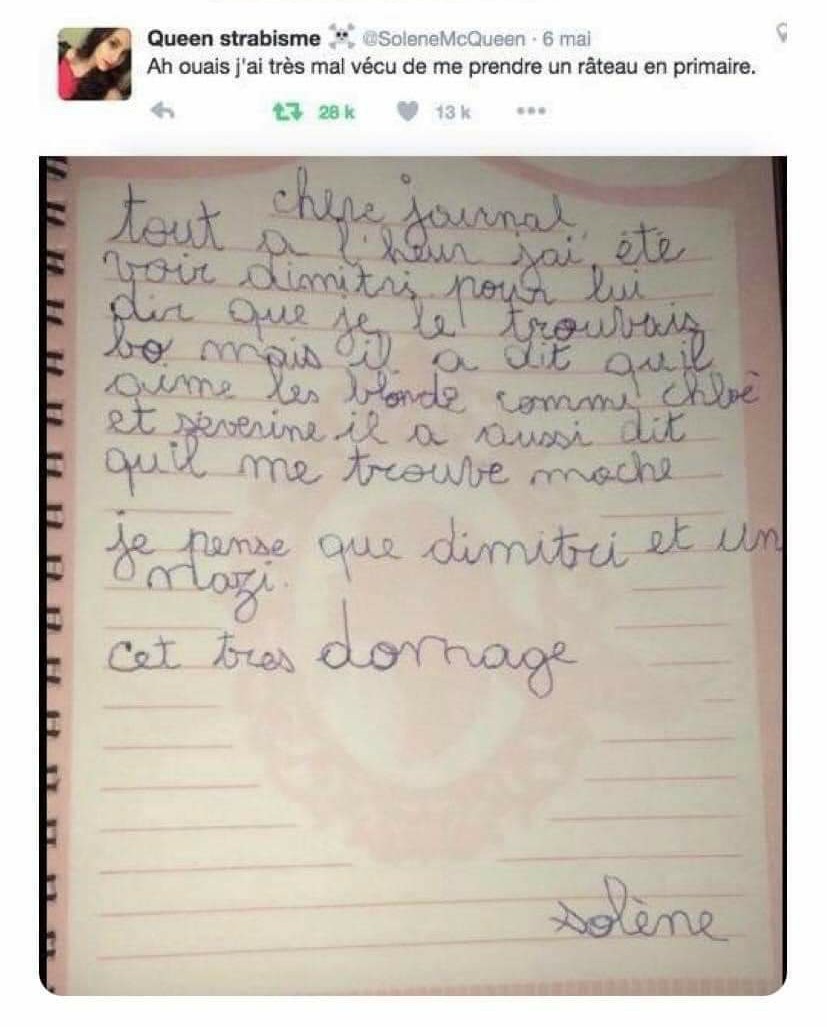 Queen strabisme ☠ @SoleneMcQueen · 6 mai
Ah ouais j'ai très mal vécu de me prendre un râteau en primaire.
28 k 13 k
chere journal,
tout a l'heur jai été
voir dimitri pour lui
dir que je le trouvais
bo mais il a dit quil
aime les blonde comme chloé
et séverine il a aussi dit
qu'il me trouve moche
je pense que dimitri et un
nazi.
cet tres domage
solène